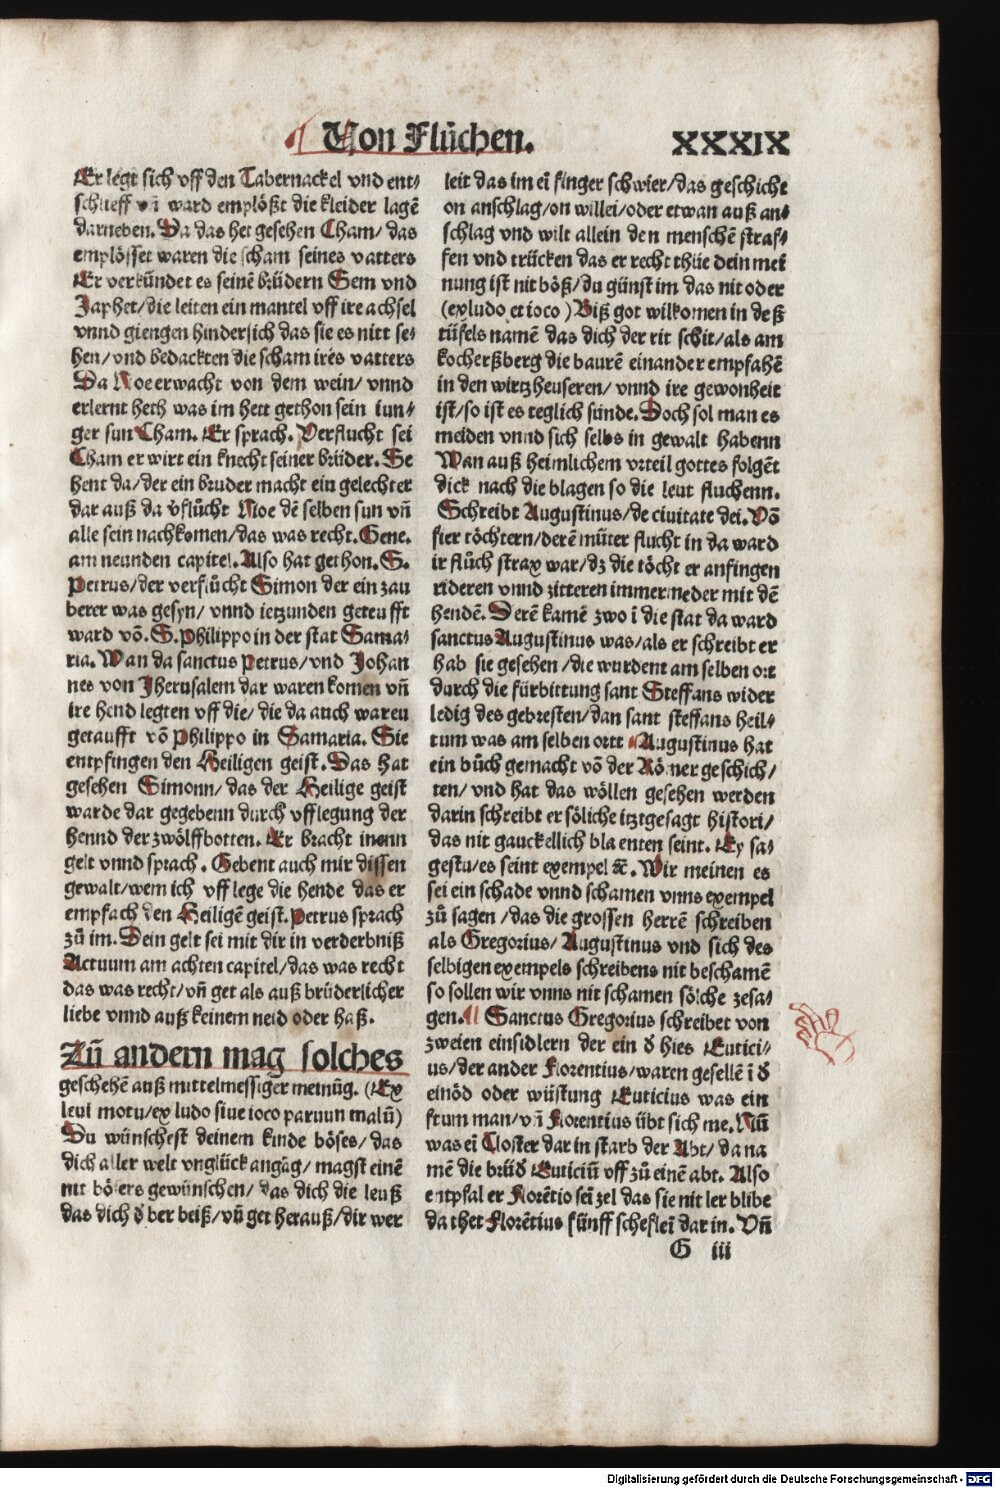 Von Flůchen.
XXXIX
Er legt sich vff den Tabernackel vnd ent⸗
schlieff vñ ward emplößt die kleider lagē
darneben. Da das het gesehen Cham/ das
emplösset waren die scham seines vatters
Er verkündet es seinē brüdern Sem vnd
Japhet/die leiten ein mantel vff ire achsel
vnnd giengen hindersich das sie es nitt se⸗
hen/ vnd bedackten die scham ires vatters
Da Noe erwacht von dem wein/ vnnd
erlernt heth was im hett gethon sein iun⸗
ger sun Cham. Er sprach. Verflucht sei
Cham er wirt ein knecht seiner brüder. Se
hent da/ der ein bruder macht ein gelechter
dar auß da vflůcht Noe dē selben sun vñ
alle sein nachkomen/das was recht. Gene.
am neunden capitel. Also hat gethon. S.
Petrus/der verflůcht Simon der ein zau
berer was gesyn/ vnnd ietzunden geteufft
ward vō. S. Philippo in der stat Sama⸗
ria. Wan da sanctus Petrus/ vnd Johan
nes von Jherusalem dar waren komen vñ
ire hend legten vff die/ die da auch waren
getaufft vō Philippo in Samaria. Sie
entpfingen den Heiligen geist. Das hat
gesehen Simonn/ das der Heilige geist
warde dar gegebenn durch vfflegung der
hennd der zwölffbotten. Er bracht inenn
gelt vnnd sprach. Gebent auch mir dissen
gewalt/wem ich vff lege die hende das er
empfach den Heiligē geist. Petrus sprach
zů im. Dein gelt sei mit dir in verderbniß
Actuum am achten capitel/das was recht
das was recht/vñ get als auß brüderlicher
liebe vnnd auß keinem neid oder haß.
Zů andern mag solches
geschehē auß mittelmessiger meinūg. (Ex
leui motu/ex ludo siue ioco paruun malū)
Du wünschest deinem kinde böses/ das
dich aller welt vnglück angāg/ magst einē
nit bösers gewünschen/ das dich die leuß
das dich ď ber beiß/ vñ get herauß/dir wer
leit das im eī finger schwier/das geschicht
on anschlag/on willei/oder etwan auß an⸗
schlag vnd wilt allein den menschē straf⸗
fen vnd trücken das er recht thüe dein mei
nung ist nit böß/du günst im das nit oder
(exludo et ioco) Biß got wilkomen in deß
tüfels namē das dich der rit schit/als am
kocherßberg die baurē einander empfahē
in den wirtzheuseren/ vnnd ire gewonheit
ist/so ist es teglich sünde. Doch sol man es
meiden vnnd sich selbs in gewalt habenn
Wan auß heimlichem vrteil gottes folgēt
dick nach die blagen so die leut fluchenn.
Schreibt Augustinus/de ciuitate dei. Vō
fier töchtern/derē müter flucht in da ward
ir flůch strax war/dz die töchter anfingen
rideren vnnd zitteren immerneder mit dē
hendē. Derē kamē zwo ī die stat da ward
sanctus Augustinus was/als er schreibt er
hab sie gesehen/die wurdent am selben ort
durch die fürbittung sant Steffans wider
ledig des gebresten/dan sant steffans heil⸗
tum was am selben ortt Augustinus hat
ein bůch gemacht vō der Römer geschich/
ten/ vnd hat das wöllen gesehen werden
darin schreibt er söliche itztgesagt histori/
das nit gauckellich bla enten seint. Ey sa⸗
gestu/es seint exempel ⁊c. Wir meinen es
sei ein schade vnnd schamen vnns exempel
zů sagen/das die grossen herrē schreiben
als Gregorius/ Augustinus vnd sich des
selbigen exempels schreibens nit beschamē
so sollen wir vnns nit schamen sölche zesa⸗
gen. ¶ Sanctus Gregorius schreibet von
zweien einsidlern der ein ď hies Eutici⸗
us/der ander Florentius/waren gesellē ī ď
einöd oder wüstung Euticius was ein
frum man/vñ Florentius übt sich me. Nū
was eī Closter dar in starb der Abt/ da na
mē die brüď Euticiū vff zů einē abt. Also
entpfal er Florētio sei zel das sie nit ler blibe
da thet Florētius fünff scheflei dar in. Vñ
G iii
Digitalisierung gefördert durch die Deutsche Forschungsgemeinschaft - DFG